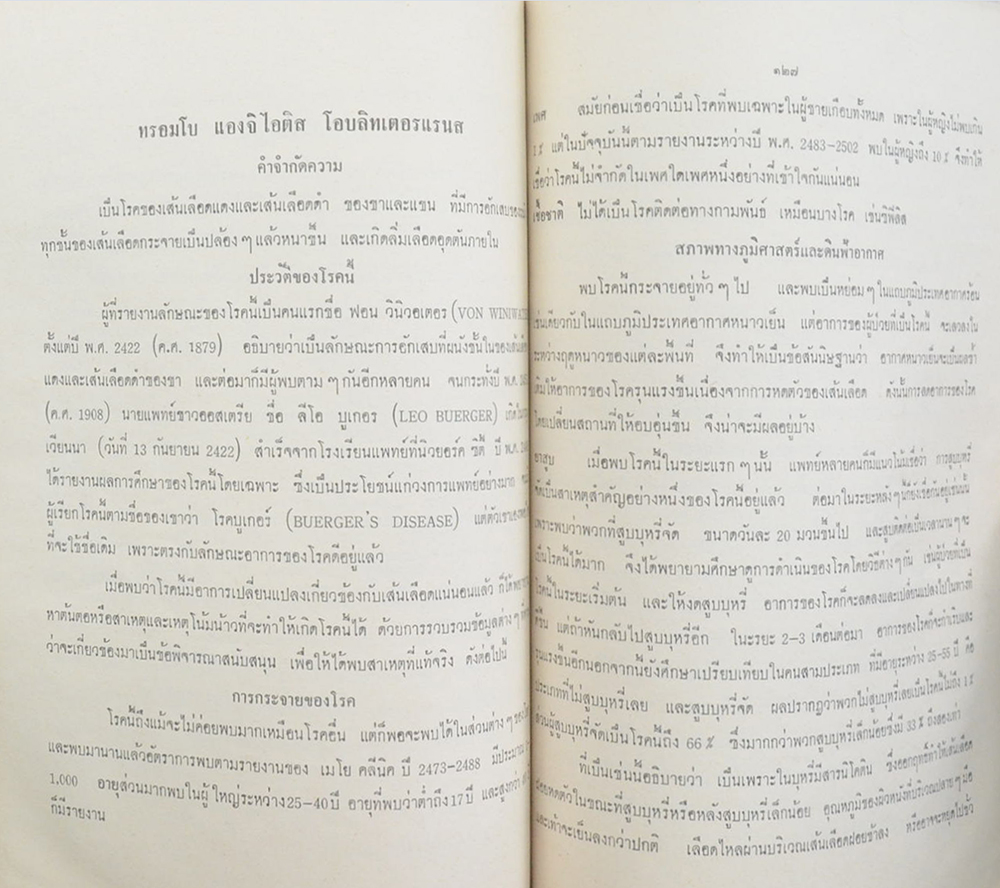 ทรอมโบ แองจิไอติส โอบลิทเตอรแรนส
คำจำกัดความ
เป็นโรคของเส้นเลือดแดงและเส้นเลือดดำ ของขาและแขน ที่มีการอักเสบของ
ทุกชั้นของเส้นเลือดกระจายเป็นปล้อง ๆ แล้วหนาขึ้น และเกิดลิ่มเลือดอุดตันภายใน
ประวัติของโรคนี้
ผู้ที่รายงานลักษณะของโรคนี้เป็นคนแรกชื่อ ฟอน วินิวอเตอร (VON WINIWA
ตั้งแต่ปี พ.ศ. 2422 (ค.ศ. 1879) อธิบายว่าเป็นลักษณะการอักเสบที่ผนังชั้นในของเส้น
แดงและเส้นเลือดดำของขา และต่อมาก็มีผู้พบตาม ๆ กันอีกหลายคน จนกระทั่งปี พ.ศ.
(ค.ศ. 1908) นายแพทย์ชาวออสเตรีย ชื่อ ลีโอ บูเกอร (LEO BUERGER) เกิด
เวียนนา (วันที่ 13 กันยายน 2422) สำเร็จจากโรงเรียนแพทย์ที่นิวยอร์ค ซิตี้ ปี พ.ศ.
ได้รายงานผลการศึกษาของโรคนี้โดยเฉพาะ ซึ่งเป็นประโยชน์แก่วงการแพทย์อย่างมาก
ผู้เรียกโรคนี้ตามชื่อของเขาว่า โรคบูเกอร์ (BUERGER'S DISEASE) แต่ตัวเขาเอง
ที่จะใช้ชื่อเดิม เพราะตรงกับลักษณะอาการของโรคดีอยู่แล้ว
เมื่อพบว่าโรคนี้มีอาการเปลี่ยนแปลงเกี่ยวข้องกับเส้นเลือดแน่นอนแล้ว ก็ได้
หาต้นตอหรือสาเหตุและเหตุโน้มน้าวที่จะทำให้เกิดโรคนี้ได้ ด้วยการรวบรวมข้อมูลต่าง ๆ
ว่าจะเกี่ยวข้องมาเป็นข้อพิจารณาสนับสนุน เพื่อให้ได้พบสาเหตุที่แท้จริง ดังต่อไปนี้
การกระจายของโรค
โรคนี้ถึงแม้จะไม่ค่อยพบมากเหมือนโรคอื่น แต่ก็พอจะพบได้ในส่วนต่าง ๆ ของ
และพบมานานแล้วอัตราการพบตามรายงานของ เมโย คลีนิค ปี 2473-2488 มีประมาณ
1,000 อายุส่วนมากพบในผู้ใหญ่ระหว่าง 25-40 ปี อายุที่พบว่าต่ำถึง 17 ปี และสูงกว่า
ก็มีรายงาน
๑๒๗
เพศ สมัยก่อนเชื่อว่าเป็นโรคที่พบเฉพาะในผู้ชายเกือบทั้งหมด เพราะในผู้หญิงไม่พบเกิน
% แต่ในปัจจุบันนี้ตามรายงานระหว่างปี พ.ศ. 2483-2502 พบในผู้หญิงถึง 10 % จึงทำให้
เชื่อว่าโรคนี้ไม่จำกัดในเพศใดเพศหนึ่งอย่างที่เข้าใจกันแน่นอน
เชื้อชาติ ไม่ได้เป็นโรคติดต่อทางกามพันธ์ เหมือนบางโรค เช่นซิฟิลิส
สภาพทางภูมิศาสตร์และดินฟ้าอากาศ
พบโรคนี้กระจายอยู่ทั่ว ๆ ไป และพบเป็นหย่อม ๆ ในแถบภูมิประเทศอากาศร้อน
เช่นเดียวกับในแถบภูมิประเทศอากาศหนาวเย็น แต่อาการของผู้ป่วยที่เป็นโรคนี้ จะเลวลงใน
ระหว่างฤดูหนาวของแต่ละพื้นที่ จึงทำให้เป็นข้อสันนิษฐานว่า อากาศหนาวเย็นจะเป็น
เติมให้อาการของโรครุนแรงขึ้นเนื่องจากการหดตัวของเส้นเลือด ดังนั้นการลดอาการของโรค
โดยเปลี่ยนสถานที่ให้อบอุ่นขึ้น จึงน่าจะมีผลอยู่บ้าง
ยาสูบ เมื่อพบโรคนี้ในระยะแรก ๆ นั้น แพทย์หลายคนก็มีแนวโน้มเชื่อว่า การสูบบุหรี่
จัดเป็นสาเหตุสำคัญอย่างหนึ่งของโรคนี้อยู่แล้ว ต่อมาในระยะหลัง ๆ นี้ก็ยังเชื่อกันอยู่เช่นนั้น
เพราะพบว่าพวกที่สูบบุหรี่จัด ขนาดวันละ 20 มวนขึ้นไป และสูบติดต่อเป็นเวลานาน ๆ จะ
เป็นโรคนี้ได้มาก จึงได้พยายามศึกษาดูการดำเนินของโรคโดยวิธีต่าง ๆ กัน เช่นผู้ป่วยที่เป็น
โรคนี้ในระยะเริ่มต้น และให้งดสูบบุหรี่ อาการของโรคก็จะลดลงและเปลี่ยนแปลงไปในทางที่
ดีขึ้น แต่ถ้าหันกลับไปสูบบุหรี่อีก ในระยะ 2-3 เดือนต่อมา อาการของโรคก็จะกำเริบและ
รุนแรงขึ้นอีกนอกจากนี้ยังศึกษาเปรียบเทียบในคนสามประเภท ที่มีอายุระหว่าง 25-55 ปี คือ
ประเภทที่ไม่สูบบุหรี่เลย และสูบบุหรี่จัด ผลปรากฏว่าพวกไม่สูบบุหรี่เลยเป็นโรคนี้ไม่ถึง 1%
ส่วนผู้สูบบุหรี่จัดเป็นโรคนี้ถึง 66 % ซึ่งมากกว่าพวกสูบบุหรี่เล็กน้อยซึ่งมี 33 % ถึงสองเท่า
ที่เป็นเช่นนี้อธิบายว่า เป็นเพราะในบุหรี่มีสารนิโคติน ซึ่งออกฤทธิ์ทำให้เส้นเลือด
ฝอยหดตัวในขณะที่สูบบุหรี่หรือหลังสูบบุหรี่เล็กน้อย อุณหภูมิของผิวหนังที่บริเวณปลาย ๆ มือ
และเท้าจะเย็นลงกว่าปกติ เลือดไหลผ่านบริเวณเส้นเลือดฝอยช้าลง หรืออาจจะหยุดไปชั่ว